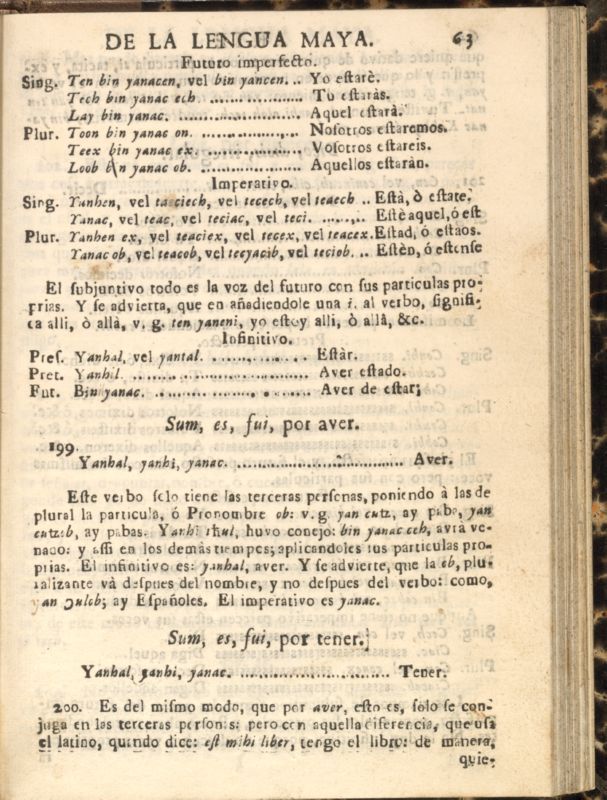 DE LA LENGUA MAYA. 63
Futuro imperfecto.
Sing. Ten bin yanacen, vel bin yancen. .. Yo estarè.
Tech bin yanac ech .................. Tu estaràs.
Lay bin yanac. ...................... Aquel estarà.
Plur. Toon bin yanac on. .............. Nosotros estaremos.
Teex bin yanac ex. .................. Vosotros estareis.
Loob bin yanac ob. .................. Aquellos estaràn.
Imperativo.
Sing. Yanhen, vel taaciech, vel tecech, vel teaech .. Està, ò estate.
Yanac, vel teac, vel teciac, vel teci. ........ Estè aquel, ó est
Plur. Yanhen ex, vel teaciex, vel tecex, vel teacex. Estad, ó estaos.
Yanac ob, vel teacob, vel tecyacib, vel teciob. .. Estèn, ó estense
El subjuntivo todo es la voz del futuro con sus particulas pro-
prias. Y se advierta, que en añadiendole una i. al verbo, signifi-
ca alli, ò allà, v. g. ten yaneni, yo estoy alli, ò allâ, &c.
Infinitivo.
Pres. Yanhal, vel yantal. .............. Estàr.
Pret. Yanhil ......................... Aver estado.
Fut. Bin yanac. ..................... Aver de estar;
Sum, es, fui, por aver.
199.
Yanhal, yanhi, yanac. .............................. Aver.
Este verbo solo tiene las terceras personas, poniendo à las de
plural la particula, ó Pronombre ob: v. g. yan cutz, ay pabo, yan
cutzob, ay pabas. Yanhi thul, huvo conejo: bin yanac ceh, avrà ve-
nado: y assi en los demàs tiempos; aplicandoles sus particulas pro-
prias. El infinitivo es: yanhal, aver. Y se advierte, que la ob, plu-
ralizante và despues del nombre, y no despues del verbo: como,
yan ɔulob; ay Españoles. El imperativo es yanac.
Sum, es, fui, por tener.
Yanhal, yanhi, yanac. ...................... Tener.
200. Es del mismo modo, que por aver, esto es, sólo se con-
juga en las terceras personas: pero con aquella diferencia, que usa
el latino, quando dice: est mihi liber, tengo el libro: de manera,
quie-